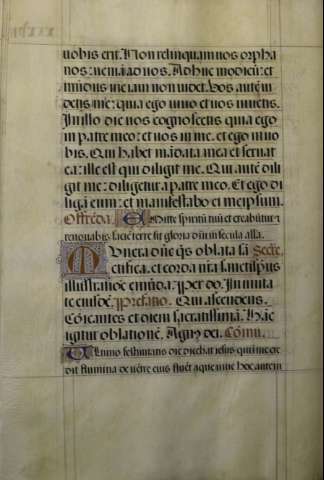 vobis erit. Non relinquam vos orpha
nos: veniā ad vos. Adhuc modicū: et
mūdus me iam non videt. Vos autē vi
detis me: quia ego vivo et vos vivetis.
In illo die vos cognoscetis quia ego
in patre meo: et vos in me. et ego in vo
bis. Qui habet mādata mea et servat
ea: ille est qui diligit me. Qui autē dili
git me: diligetur a patre meo. Et ego di
ligā eum: et manifestabo ei meipsum.
Offreda. Emitte spiritū tuū et creabūtur et
renovabis faciē terre sit gloria dn̄i in secula alla.
Munera dn̄e q̄s oblata sā Secre.
ctifica. et corda nr̄a sancti sp̄us
illustratiōe emūda. Per do. In unita
te eiusdē. Prefatio. Qui ascendens.
Cōicantes et diem sacratissimā. Hāc
igitur oblationē. Agn̄ dei. Cōmu.
Ultimo festivitatis die dicebat iesus qui in me cre
dit flumina de vētre eius fluēt aque vive hoc autem